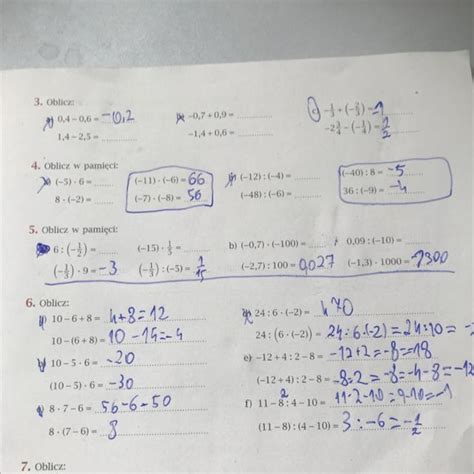 3. Oblicz:
a) 0,4 − 0,6 = −0,2 b) −0,7 + 0,9 = c) −1/3 + (−2/3) = −1
1,4 − 2,5 = −1,4 + 0,6 = −2 3/4 − (−1/4) =
4. Oblicz w pamięci:
a) (−5) · 6 = (−11) · (−6) = 66 b) (−12) : (−4) = (−40) : 8 = −5
8 · (−2) = (−7) · (−8) = 56 (−48) : (−6) = 36 : (−9) = −4
5. Oblicz w pamięci:
6 : (−1/2) = (−15) · 1/5 = b) (−0,7) · (−100) = 0,09 : (−10) =
(−1/3) · 9 = −3 (−1/3) : (−5) = 1/15 (−2,7) : 100 = 0,027 (−1,3) · 1000 = −1300
6. Oblicz:
a) 10 − 6 + 8 = 4+8=12 24 : 6 · (−2) =
10 − (6 + 8) = 10 − 14 = −4 24 : (6 · (−2)) = 24:6·(−2)=24:10=
b) 10 − 5 · 6 = −20 e) −12 + 4 : 2 − 8 = −12+2−8=−18
(10 − 5) · 6 = −30 (−12 + 4) : 2 − 8 = −8:2=−8=−4−8=−12
8 · 7 − 6 = 56−6−50 f) 11 − 8 : 4 − 10 = 11−2−10=9−10=−1
8 · (7 − 6) = 8 (11 − 8) : (4 − 10) = 3:−6=−1/2
7. Oblicz: